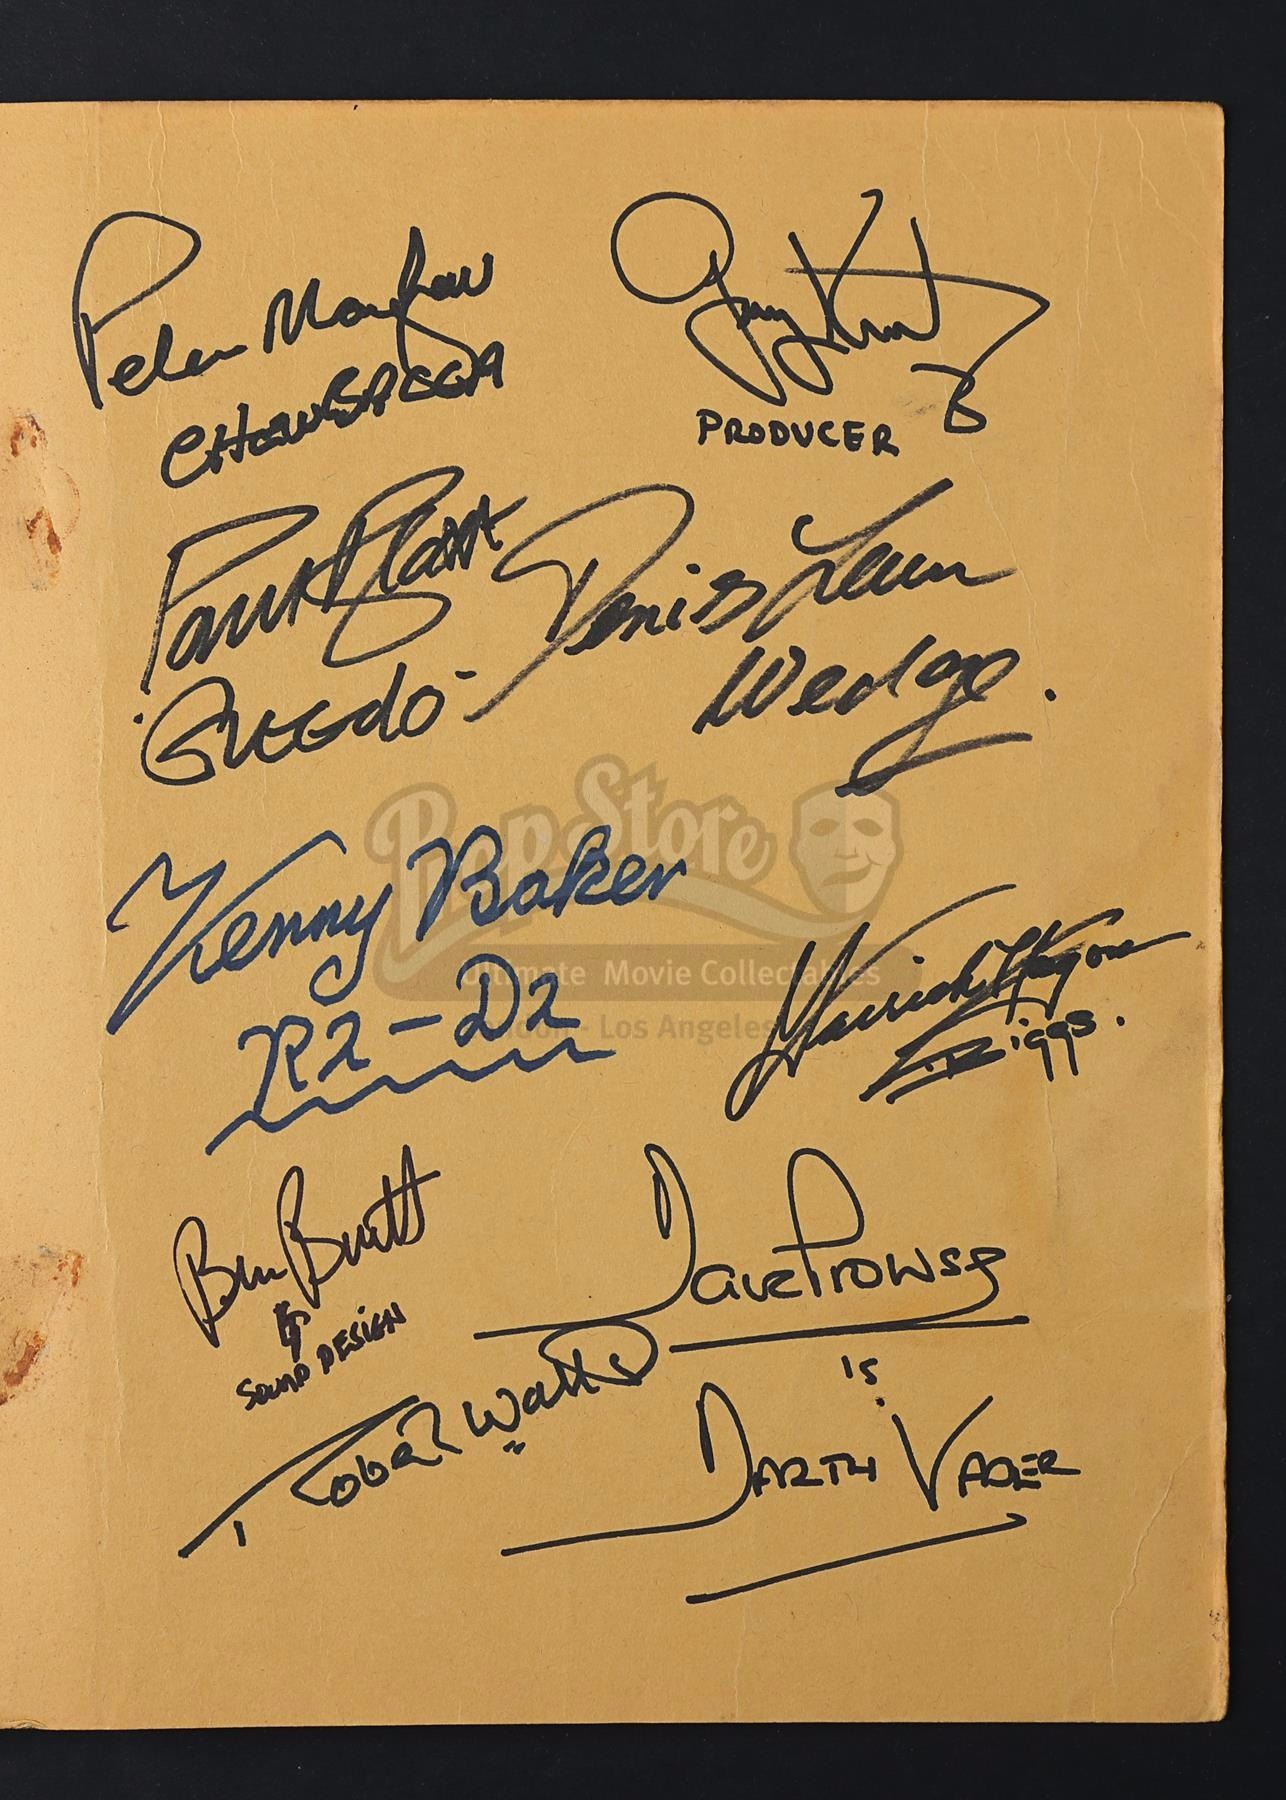 Peter Mayhew
CHEWBACCA
Gary Kurtz
PRODUCER
Paul Blake
'GREEDO'
Denis Lawson
Wedge.
PropStore
Ultimate Movie Collectables
London - Los Angeles
Kenny Baker
R2-D2
Garrick Hagon
Biggs.
Ben Burtt
SOUND DESIGN
Dave Prowse
is
DARTH VADER
Robert Watts